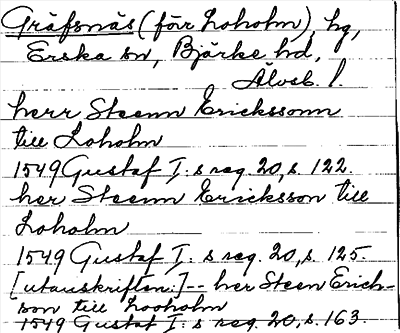 Gräfsnäs (förr Loholm), hg,
Erska sn, Bjärke hd,
Älvsb. l.
herr Steenn Erickssonn
till Loholm
1549 Gustaf I:s reg. 20, s. 122.
her Stenn Ericksson till
Loholm
1549 Gustaf I:s reg. 20, s. 125.
[utanskriften:]-- her Steen Erich-
son till Looholm
1549 Gustaf I:s reg. 20, s. 163.